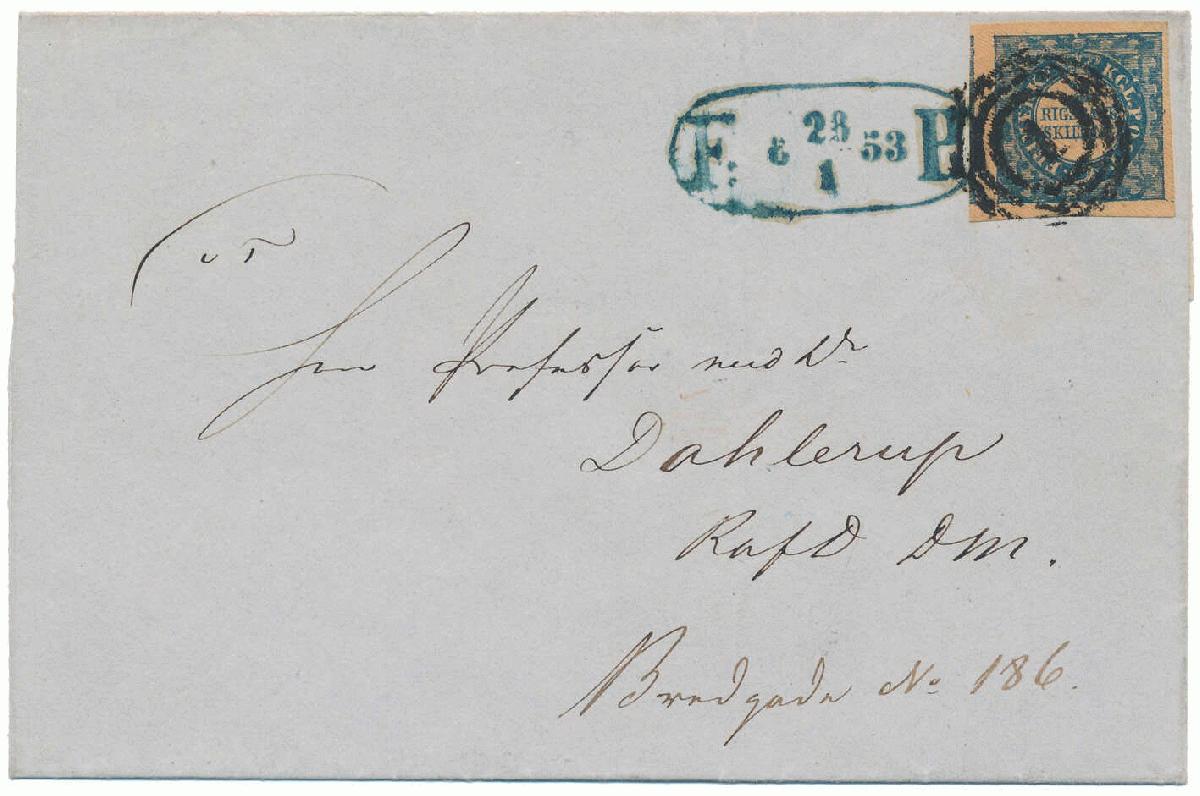 F: 6 28/1 53 P
KGL. P
RIGS
SKIL
Herr Professor med Dr
Dahlerup
R af D DM.
Bredgade No 186.